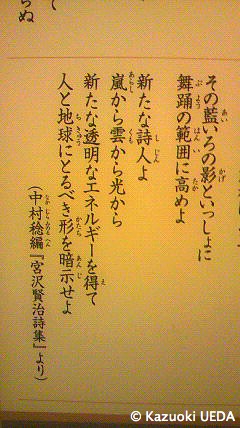 て
らぬ
その藍いろの影といっしょに
舞踊の範囲に高めよ
新たな詩人よ
嵐から雲から光から
新たな透明なエネルギーを得て
人と地球にとるべき形を暗示せよ
（中村稔編『宮沢賢治詩集』より）
© Kazuoki UEDA